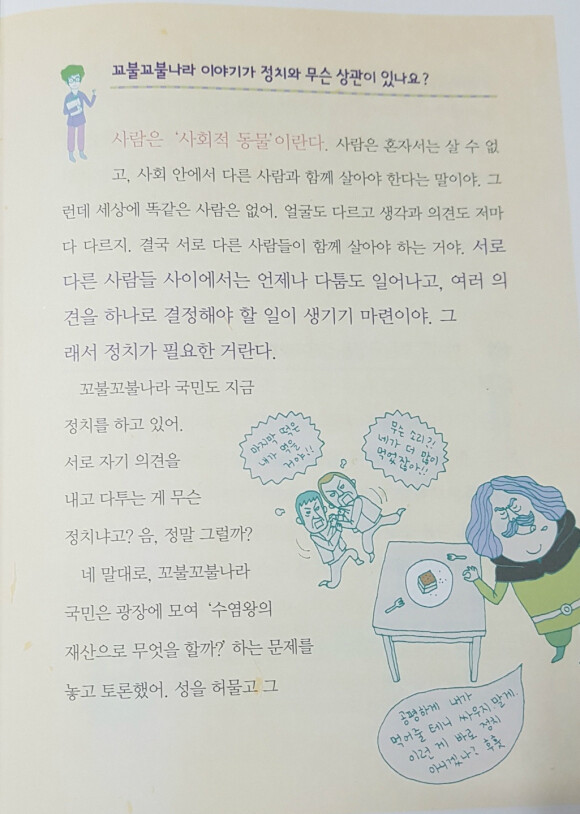 꼬불꼬불나라 이야기가 정치와 무슨 상관이 있나요?
사람은 ‘사회적 동물’이란다. 사람은 혼자서는 살 수 없
고, 사회 안에서 다른 사람과 함께 살아야 한다는 말이야. 그
런데 세상에 똑같은 사람은 없어. 얼굴도 다르고 생각과 의견도 저마
다 다르지. 결국 서로 다른 사람들이 함께 살아야 하는 거야. 서로
다른 사람들 사이에서는 언제나 다툼도 일어나고, 여러 의
견을 하나로 결정해야 할 일이 생기기 마련이야. 그
래서 정치가 필요한 거란다.
꼬불꼬불나라 국민도 지금
정치를 하고 있어.
서로 자기 의견을
내고 다투는 게 무슨
정치냐고? 음, 정말 그럴까?
네 말대로, 꼬불꼬불나라
국민은 광장에 모여 ‘수염왕의
재산으로 무엇을 할까?’ 하는 문제를
놓고 토론했어. 성을 허물고 그
마지막 떡은
내가 먹을
거야!!
무슨 소리?!
네가 더 많이
먹었잖아!!
공평하게 내가
먹어줄 테니 싸우지 말게.
이런 게 바로 정치
아니겠나? 후훗